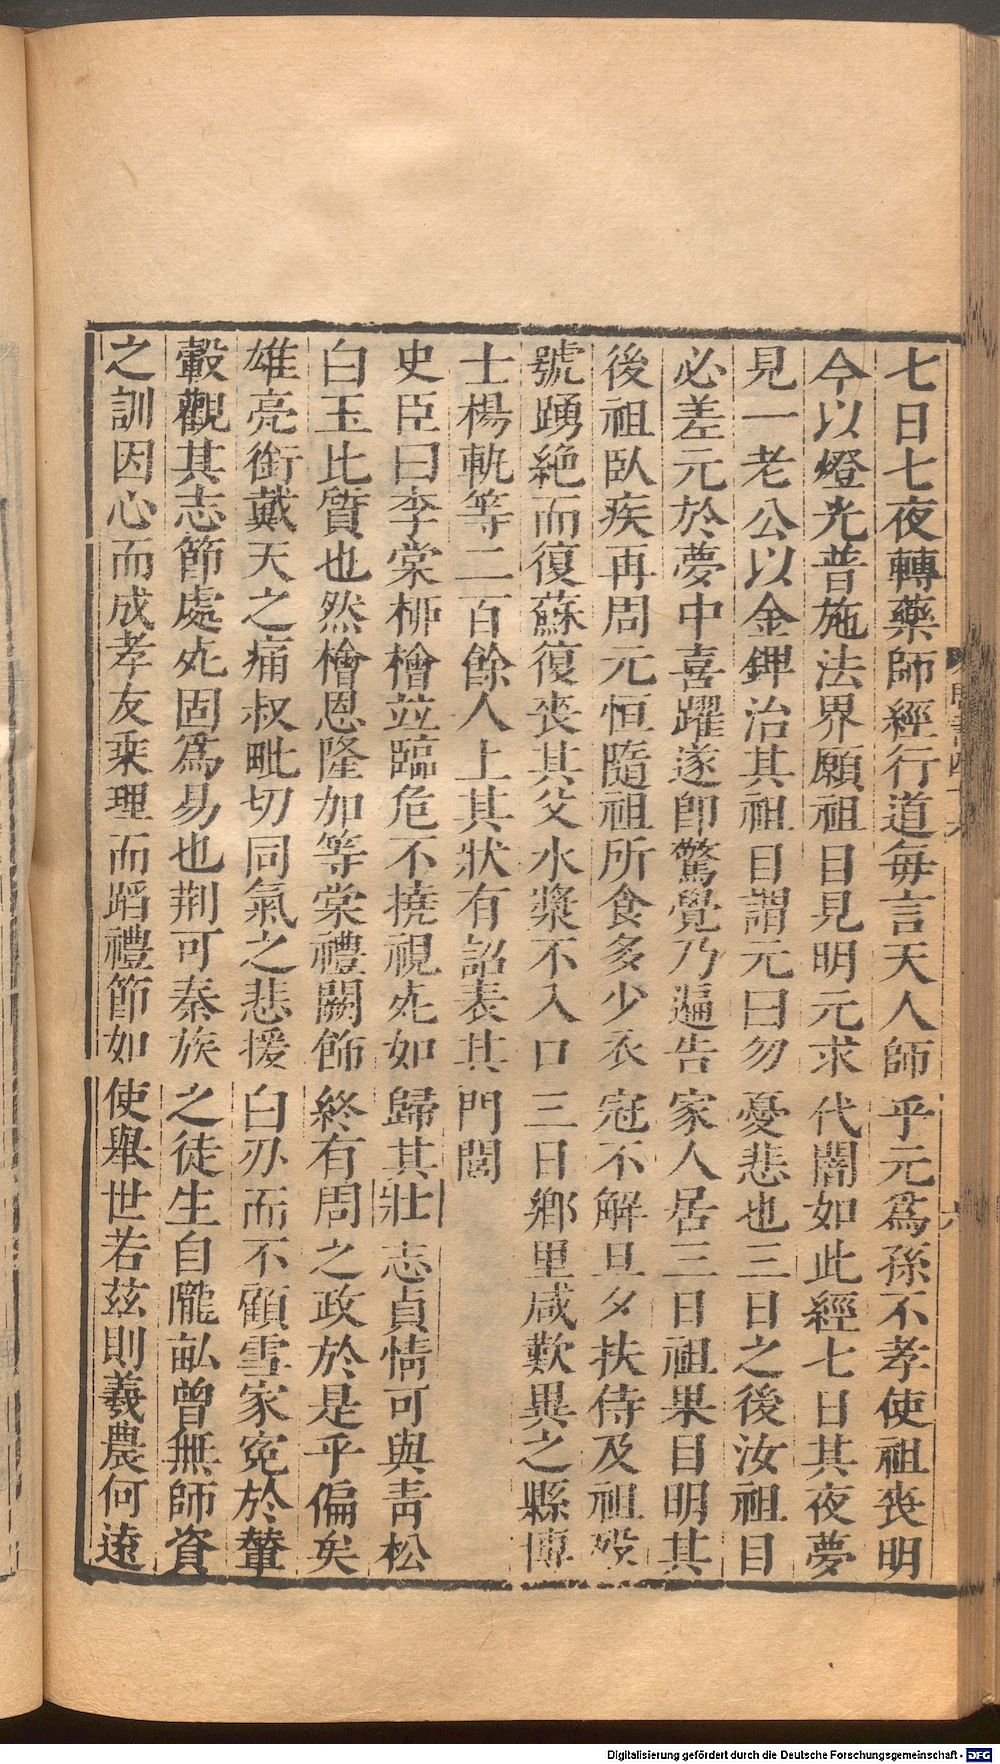 七日七夜轉藥師經行道每言天人師乎元爲孫不孝使祖喪明
今以燈光普施法界願祖目見明元求代闇如此經七日其夜夢
見一老公以金鎞治其祖目謂元曰勿憂悲也三日之後汝祖目
必差元於夢中喜躍遂即驚覺乃遍告家人居三日祖果目明其
後祖臥疾再周元恒隨祖所食多少衣冠不解旦夕扶侍及祖歿
號踴絶而復蘇復喪其父水漿不入口三日鄉里咸歎異之縣博
士楊軌等二百餘人上其狀有詔表其門閭
史臣曰李棠柳檜竝臨危不撓視死如歸其壯志貞情可與青松
白玉比質也然檜恩隆加等棠禮闕飾終有周之政於是乎偏矣
雄亮銜戴天之痛叔毗切同氣之悲援白刃而不顧雪家冤於輦
轂觀其志節處死固爲易也荆可秦族之徒生自隴畝曾無師資
之訓因心而成孝友乘理而蹈禮節如使舉世若兹則羲農何遠
Digitalisierung gefördert durch die Deutsche Forschungsgemeinschaft - DFG